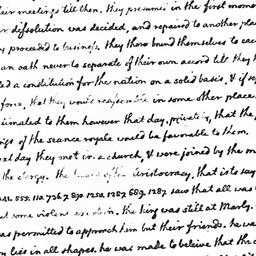 their meetings till then, they presumed in the first momen
r dissolution was decided, and repaired to another plac
y proceeded to business. they there bound themselves to eac
an oath never to separate of their own accord till they h
ed a constitution for the nation on a solid basis, & if sep
force, that they would reassemble in some other place.
timated to them however that day, privately, that the p
ngs of the seance royale would be favorable to them.
next day they met in a church, & were joined by the m
the clergy. the of the Aristocracy, that is to say
552. 110. 726. 1250. 1287. 689. 1287. said that all was
some violent the king was still at Marly.
was permitted to approach him but their friends. he wa
lies in all shapes. he was made to believe that the c